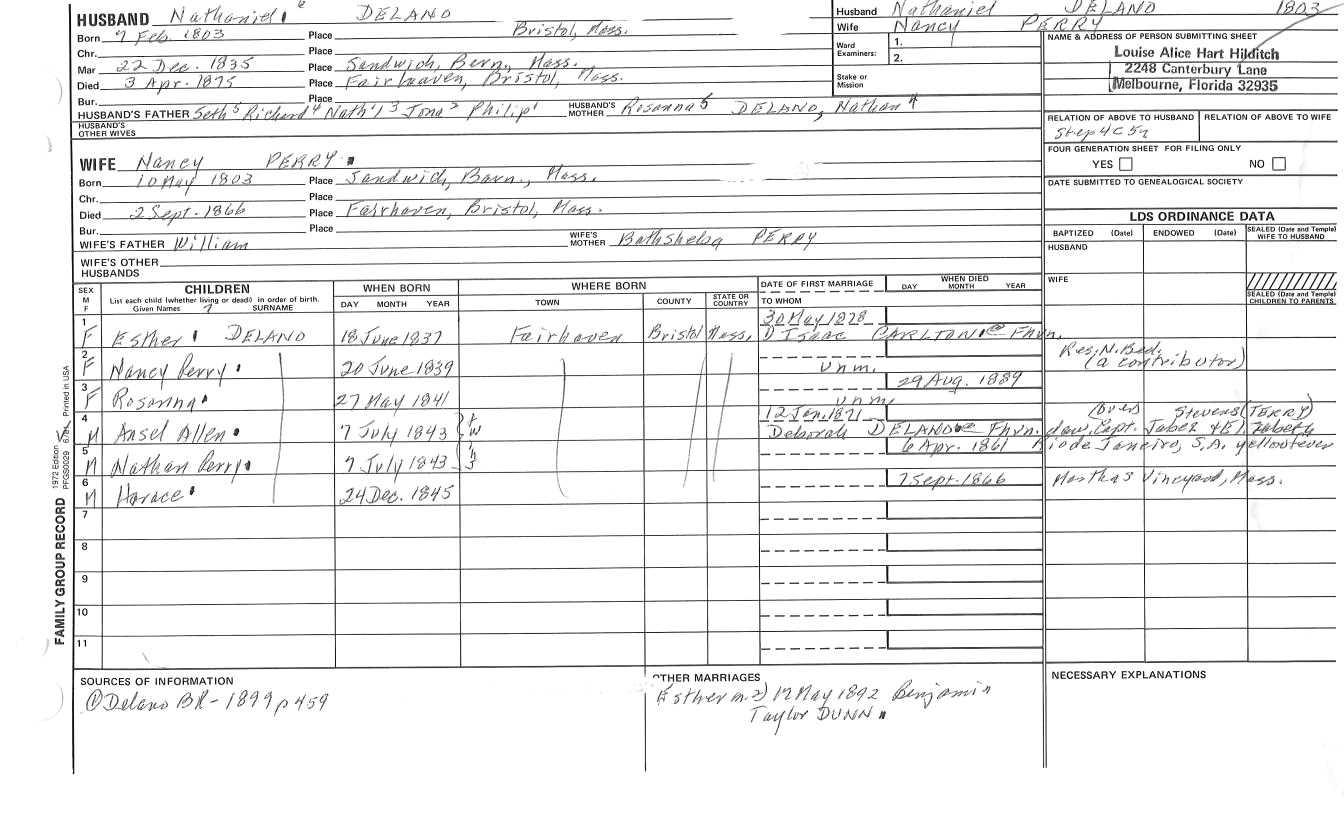 HUSBAND Nathaniel 6 DELANO
Born 7 Feb. 1803 Place Bristol, Mass.
Chr. Place
Mar 22 Dec. 1835 Place Sandwich, Bern, Mass.
Died 3 Apr. 1875 Place Fairhaven, Bristol, Mass.
Bur. Place
HUSBAND'S FATHER Seth 5 Richard 4 Nath'l 3 Jona 2 Philip 1 HUSBAND'S MOTHER Rosanna 5 DELANO, Nathan 4
HUSBAND'S OTHER WIVES
Husband Nathaniel DELANO 1803
Wife Nancy PERRY
Ward Examiners: 1.
2.
Stake or Mission
NAME & ADDRESS OF PERSON SUBMITTING SHEET
Louise Alice Hart Hilditch
2248 Canterbury Lane
Melbourne, Florida 32935
RELATION OF ABOVE TO HUSBAND RELATION OF ABOVE TO WIFE
Step 4C5r
FOUR GENERATION SHEET FOR FILING ONLY
YES NO
DATE SUBMITTED TO GENEALOGICAL SOCIETY
LDS ORDINANCE DATA
BAPTIZED (Date) ENDOWED (Date) SEALED (Date and Temple) WIFE TO HUSBAND
HUSBAND
WIFE
SEALED (Date and Temple) CHILDREN TO PARENTS
WIFE Nancy PERRY
Born 10 May 1803 Place Sandwich, Barn., Mass.
Chr. Place
Died 2 Sept. 1866 Place Fairhaven, Bristol, Mass.
Bur. Place
WIFE'S FATHER William WIFE'S MOTHER Bathsheba PERRY
WIFE'S OTHER HUSBANDS
SEX M F
CHILDREN
List each child (whether living or dead) in order of birth.
Given Names 7 SURNAME
WHEN BORN
DAY MONTH YEAR
WHERE BORN
TOWN COUNTY STATE OR COUNTRY
DATE OF FIRST MARRIAGE
TO WHOM
WHEN DIED
DAY MONTH YEAR
1 F Esther DELANO 18 June 1837 Fairhaven Bristol Mass. 30 May 1878
1) Isaac CARLTON @ Fhvn.
Res. N. Bed.
(a contributor)
2 F Nancy Perry 20 June 1839 unm.
29 Aug. 1889
3 F Rosanna 27 May 1841 unm.
4 M Ansel Allen 7 July 1843 12 Jan. 1871
Deborah DELANO @ Fhvn. daw. Capt. Jabez & Elizabeth
(over) Stevens (TERRY)
5 M Nathan Perry 7 July 1843 6 Apr. 1861 Rio de Janeiro, S.A. yellow fever
6 M Horace 24 Dec. 1845 7 Sept. 1866 Marthas Vineyard, Mass.
7
8
9
10
11
FAMILY GROUP RECORD
1972 Edition
PFGS0029 Printed in USA
SOURCES OF INFORMATION
① Delano BR - 1899 p 459
OTHER MARRIAGES
Esther m. 2) 17 May 1892 Benjamin
Taylor DUNN
NECESSARY EXPLANATIONS